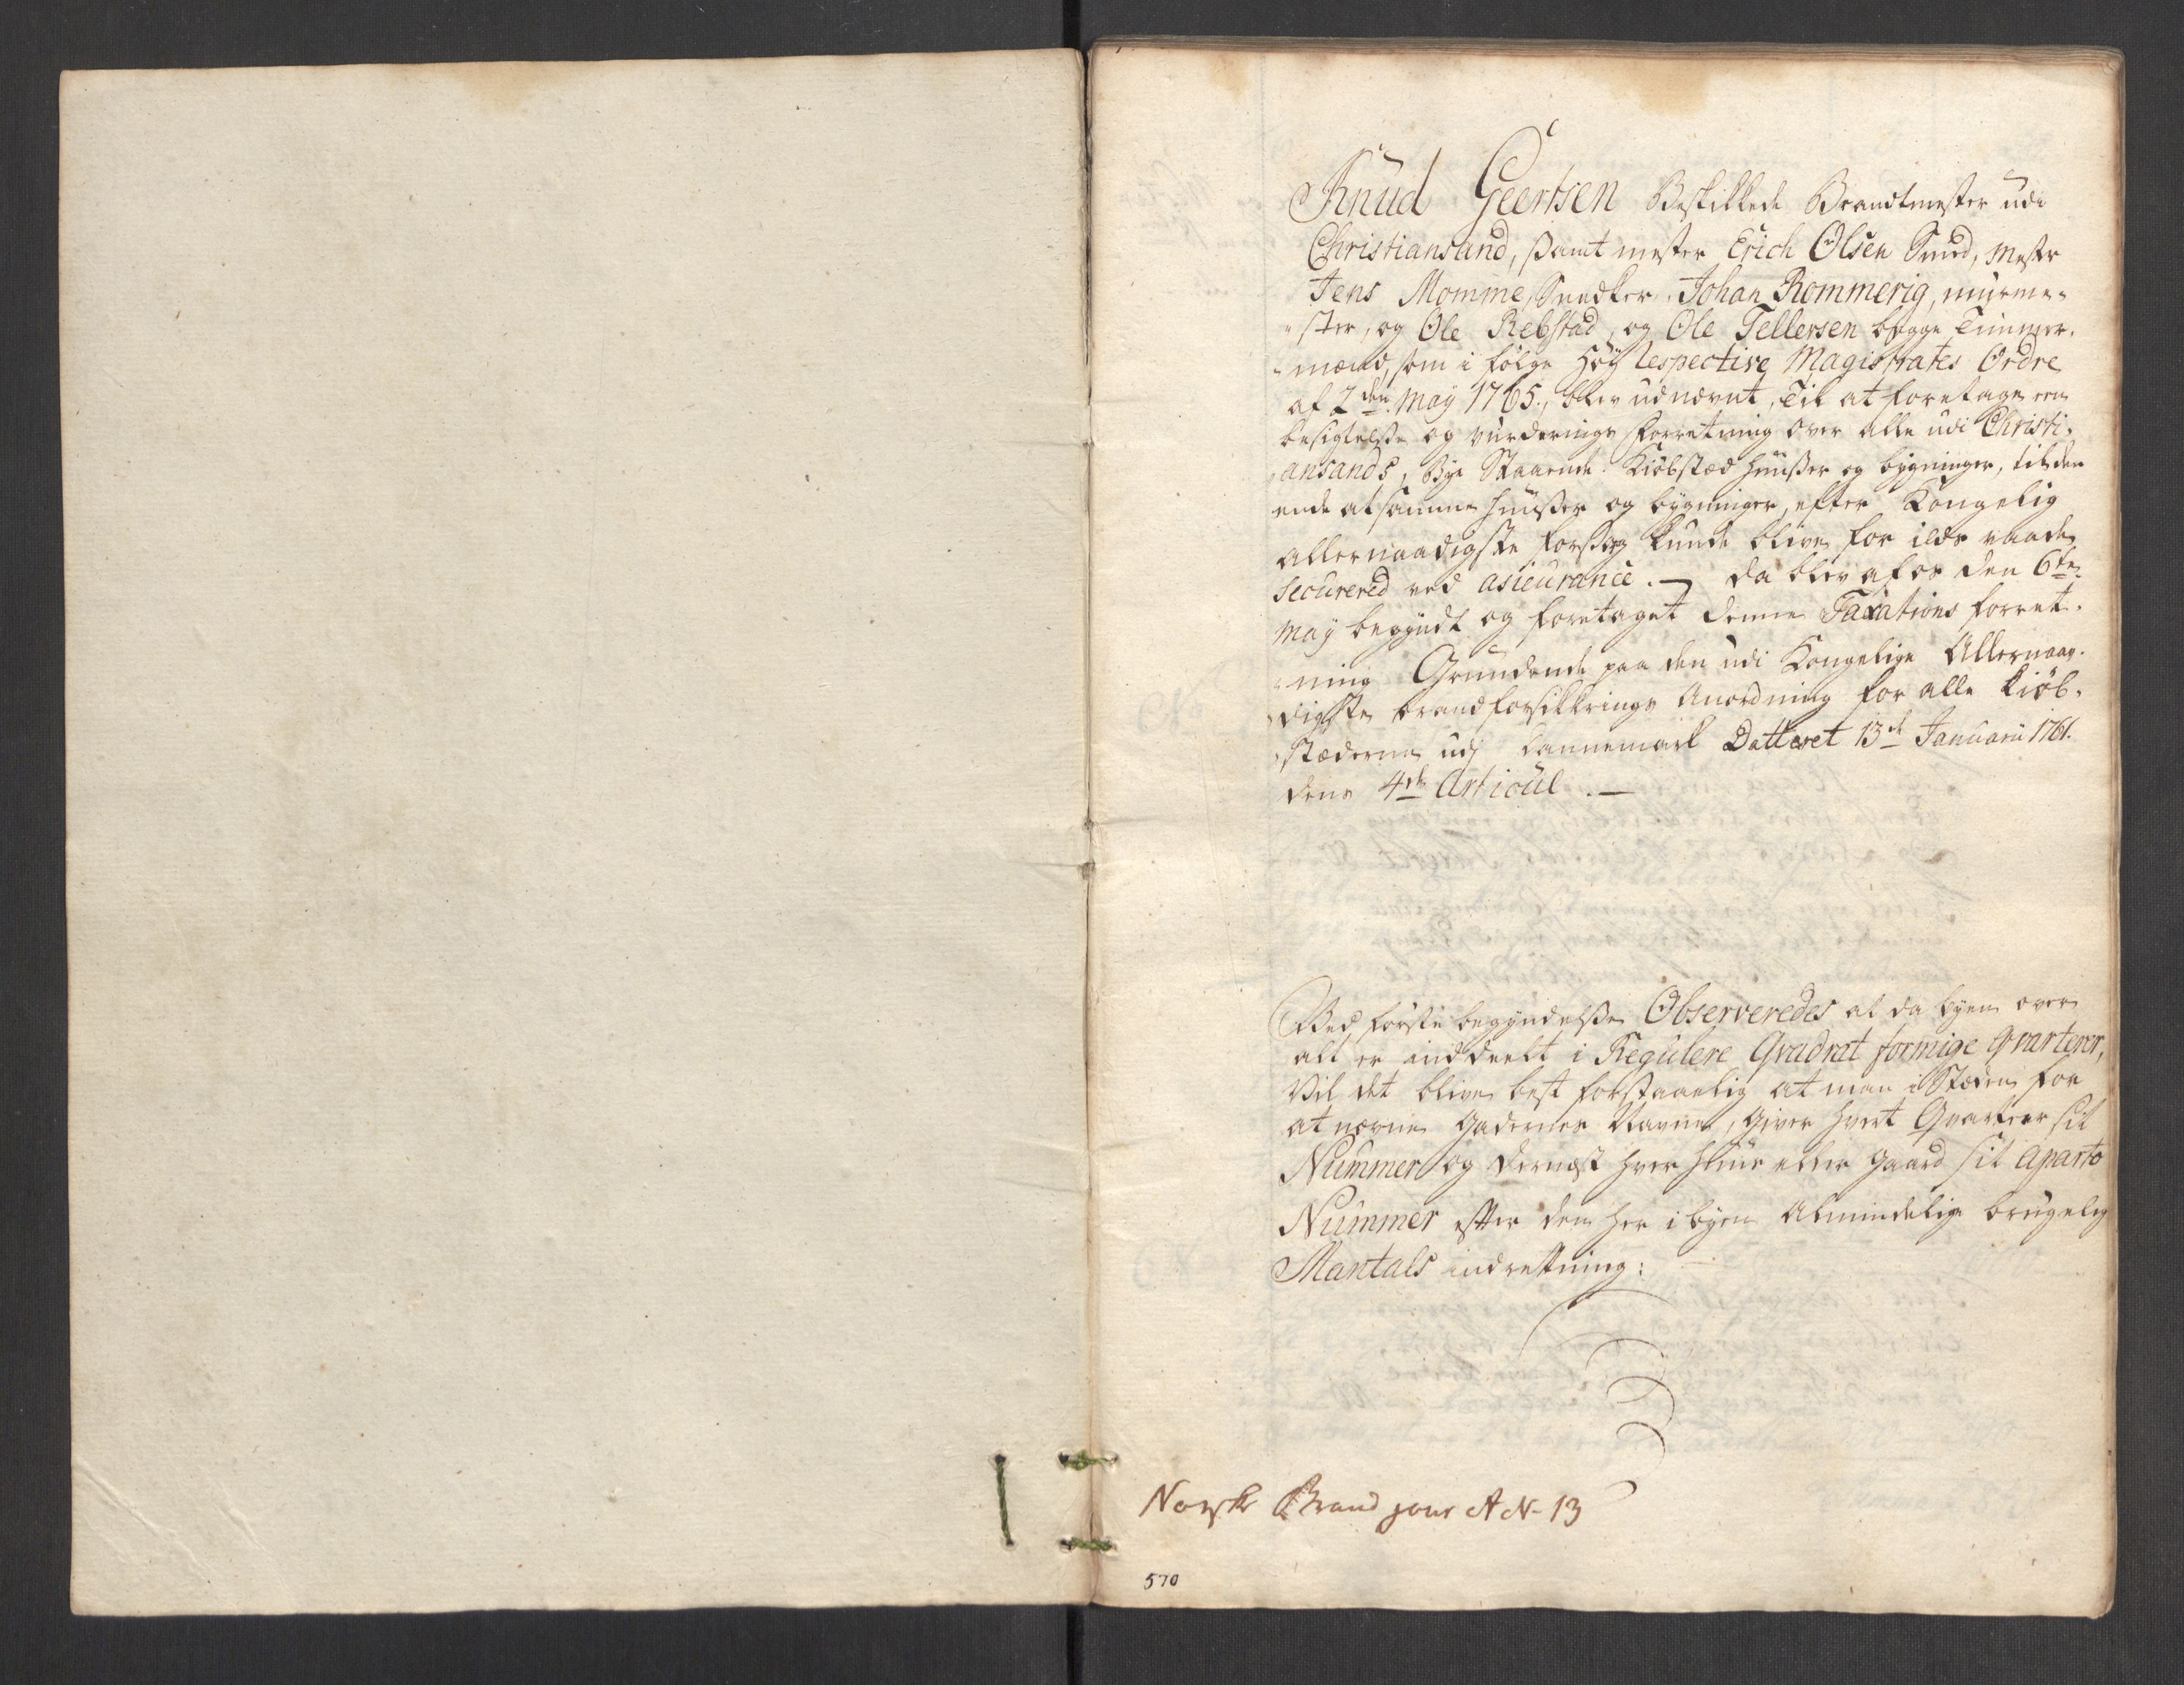 Knud Geertsen Beskikkede Brandtmester udi
Christiansand, samt mester Erich Olsen Smed, Mester
Jens Momme, Snedker, Johan Rommerig, murme-
ster, og Ole Rebstad, og Ole Tellefsen begge Timmer-
mænd, som i følge Høy respective Magistrates Ordre
af 2den May 1765, blev udnævnt, Til at foretage een
besigtelse og vurderings Forretning over alle udi Christi-
ansands Bye Staaende Kiøbstæd Huuser og bygninger, til den
ende at samme Huuser og bygninger, efter Kongelig
allernaadigste forsorg kunde blive for ilds vaade
securered ved asseurance. – da blev af os den 6te
May begyndt og foretaget denne Taxations forret-
ning Grundende paa den udi Kongelige Allernaa-
digste brandforsikkrings Anordning for alle kiøb-
stæderne udj Dannemark Datteret 13de Januarii 1761.
dens 4de Articul. –
Ved første begyndelse Observeredes at da byen over
alt er inddeelt i Regulere Qvadrat formige qvarterer,
Vil det blive best forstaaelig at man i Stæden for
at nævne gadernes Navne, giver hvert Qvarteer sit
Nummer og dernæst hver Huus eller gaard sit aparte
Nummer efter den her i byen Almindelige brugelig
Mantals indrettning:
Norske Brand jour A N- 13
570